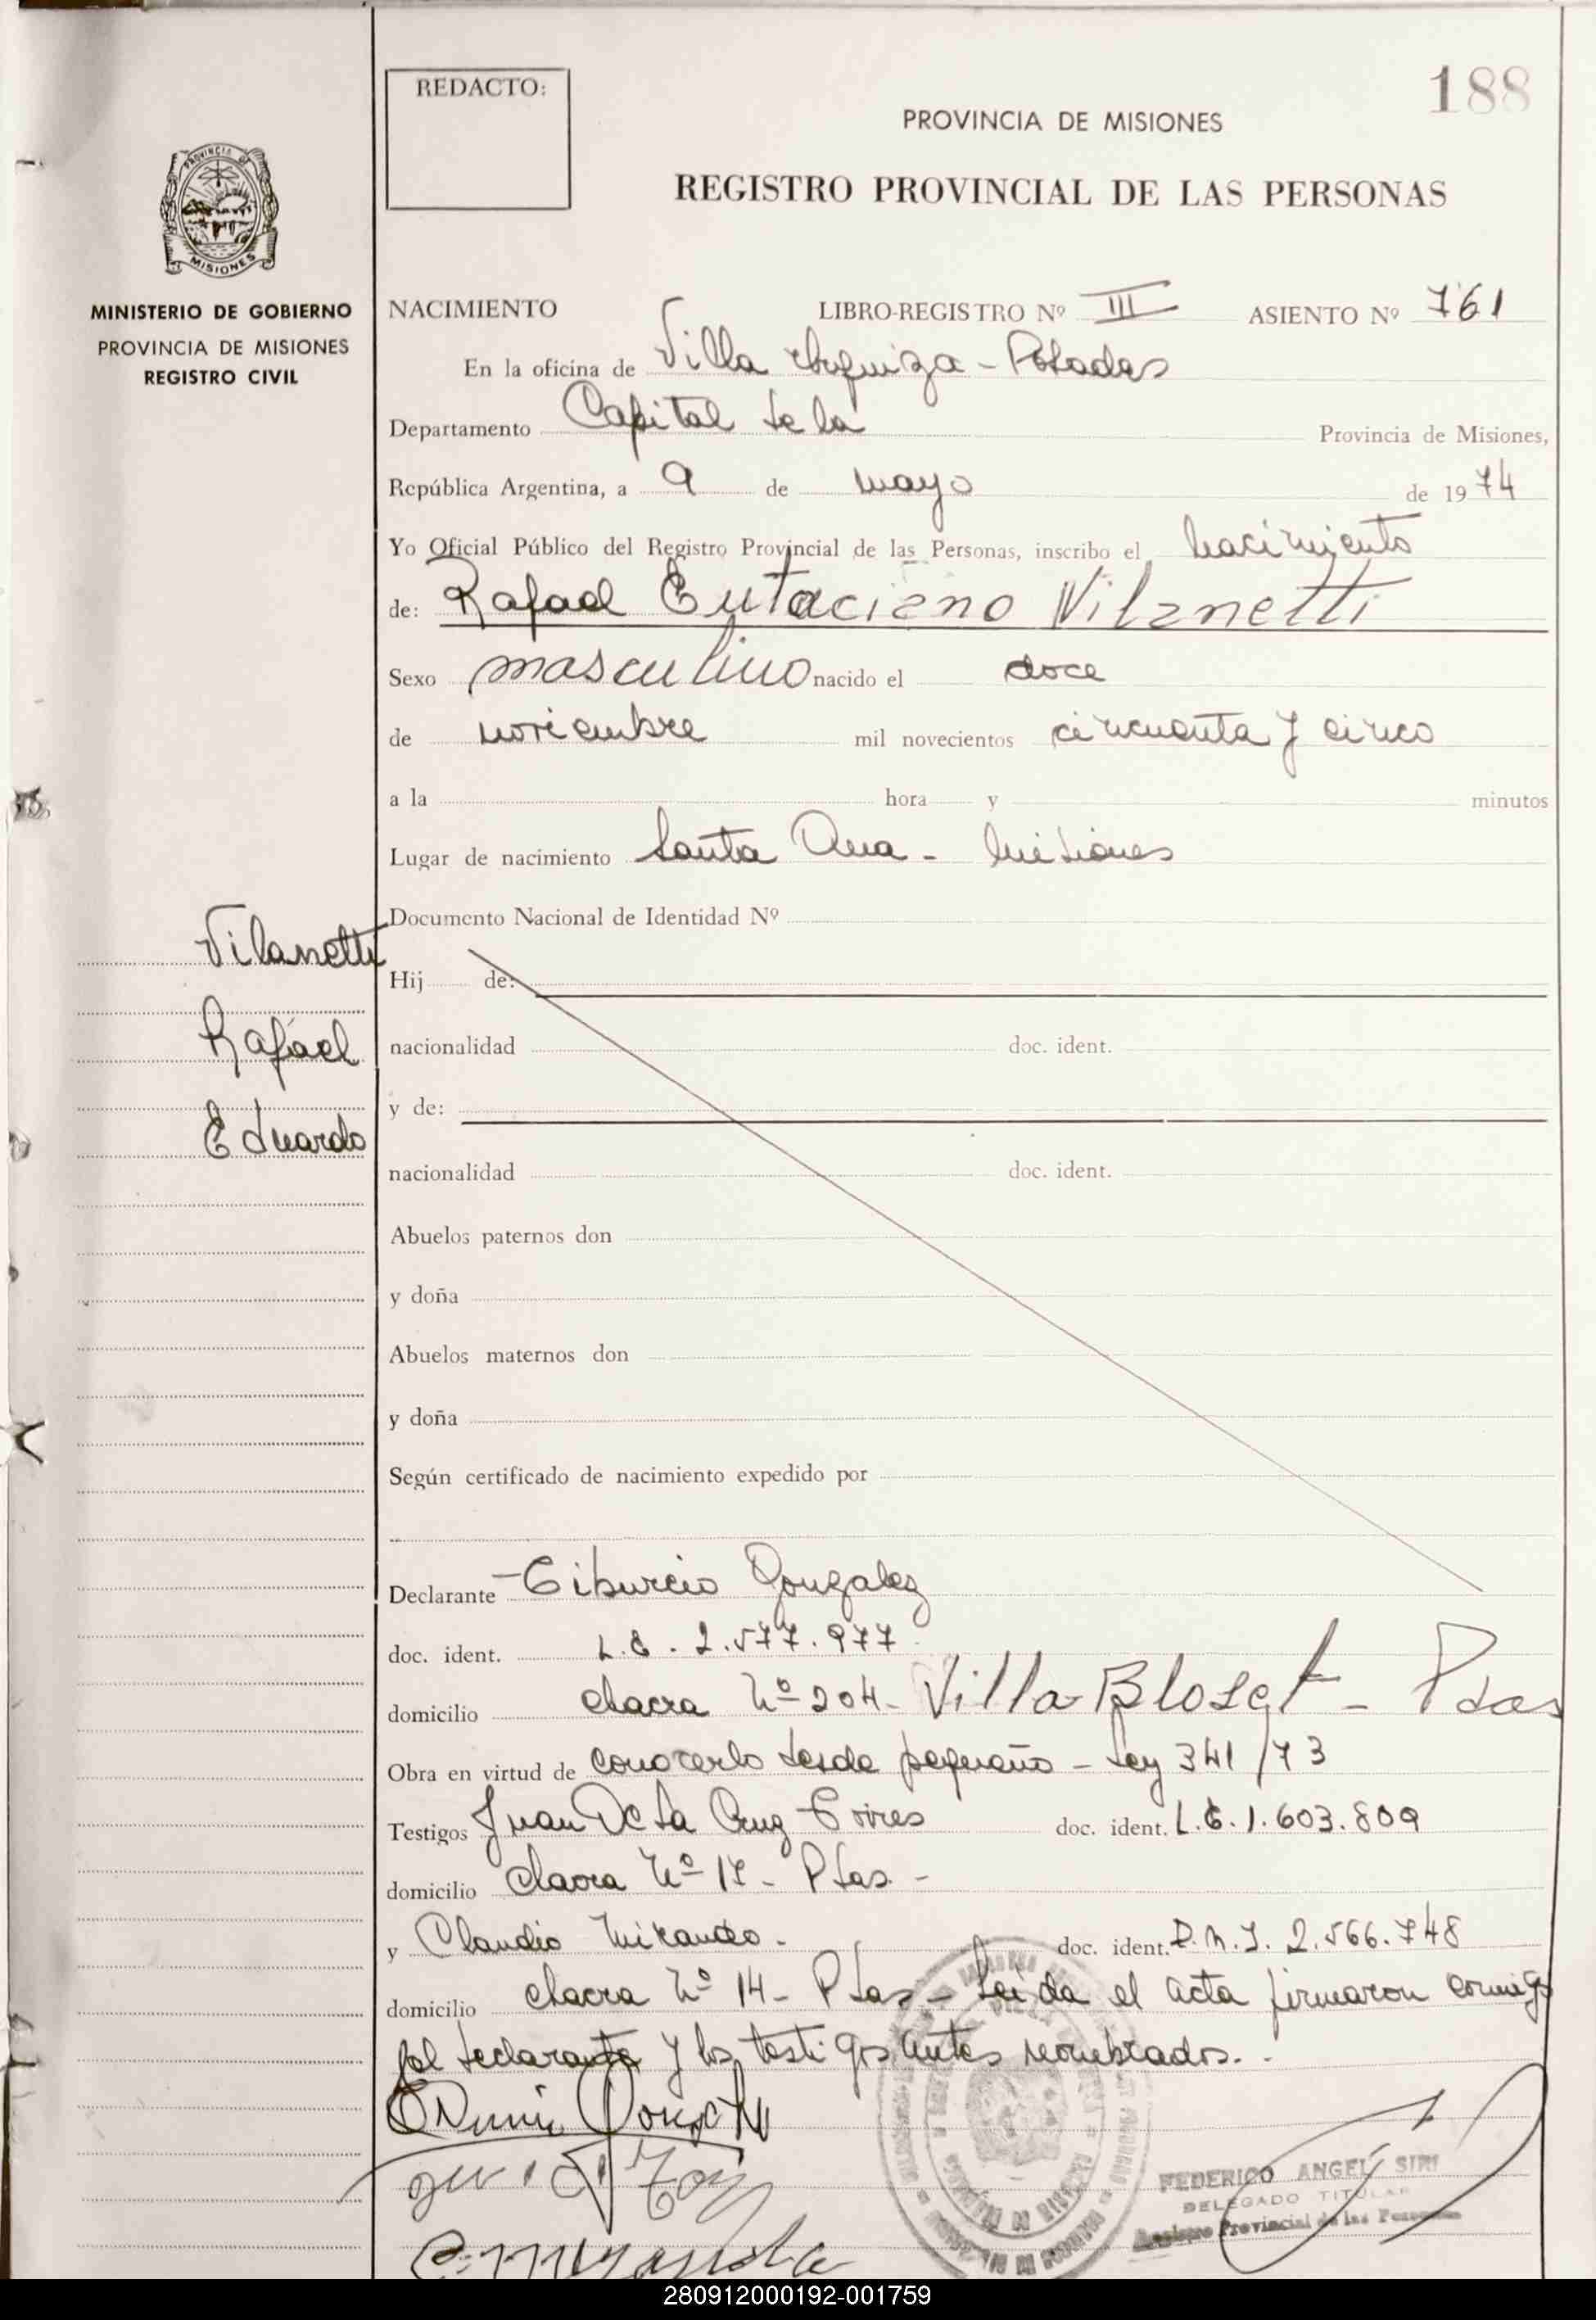 188
REDACTO:
PROVINCIA DE MISIONES
REGISTRO PROVINCIAL DE LAS PERSONAS
PROVINCIA DE
MISIONES
MINISTERIO DE GOBIERNO
PROVINCIA DE MISIONES
REGISTRO CIVIL
NACIMIENTO LIBRO-REGISTRO Nº III ASIENTO Nº 761
En la oficina de Villa Urquiza - Posadas
Departamento Capital de la Provincia de Misiones,
República Argentina, a 9 de mayo de 1974
Yo Oficial Público del Registro Provincial de las Personas, inscribo el nacimiento
de: Rafael Eutaciano Vilanetti
Sexo masculino nacido el doce
de noviembre mil novecientos cincuenta y cinco
a la hora y minutos
Lugar de nacimiento Santa Ana - Misiones
Documento Nacional de Identidad Nº
Vilanetti
Rafael
Eduardo
Hij de:
nacionalidad doc. ident.
y de:
nacionalidad doc. ident.
Abuelos paternos don
y doña
Abuelos maternos don
y doña
Según certificado de nacimiento expedido por
Declarante Tiburcio Gonzalez
doc. ident. L.E. 2.577.977
domicilio chacra Nº 204 - Villa Bloset - Pdas
Obra en virtud de conocerlo desde pequeño - Ley 341/73
Testigos Juan De La Cruz Torres doc. ident. L.E. 1.603.809
domicilio chacra Nº 17 - Pdas. -
y Claudio Miranda. doc. ident. D.N.I. 2.566.748
domicilio chacra Nº 14 - Pdas - Leida el acta firmaron conmigo
el declarante y los testigos antes nombrados. -
FEDERICO ANGEL SIRI
DELEGADO TITULAR
Registro Provincial de las Personas
280912000192-001759